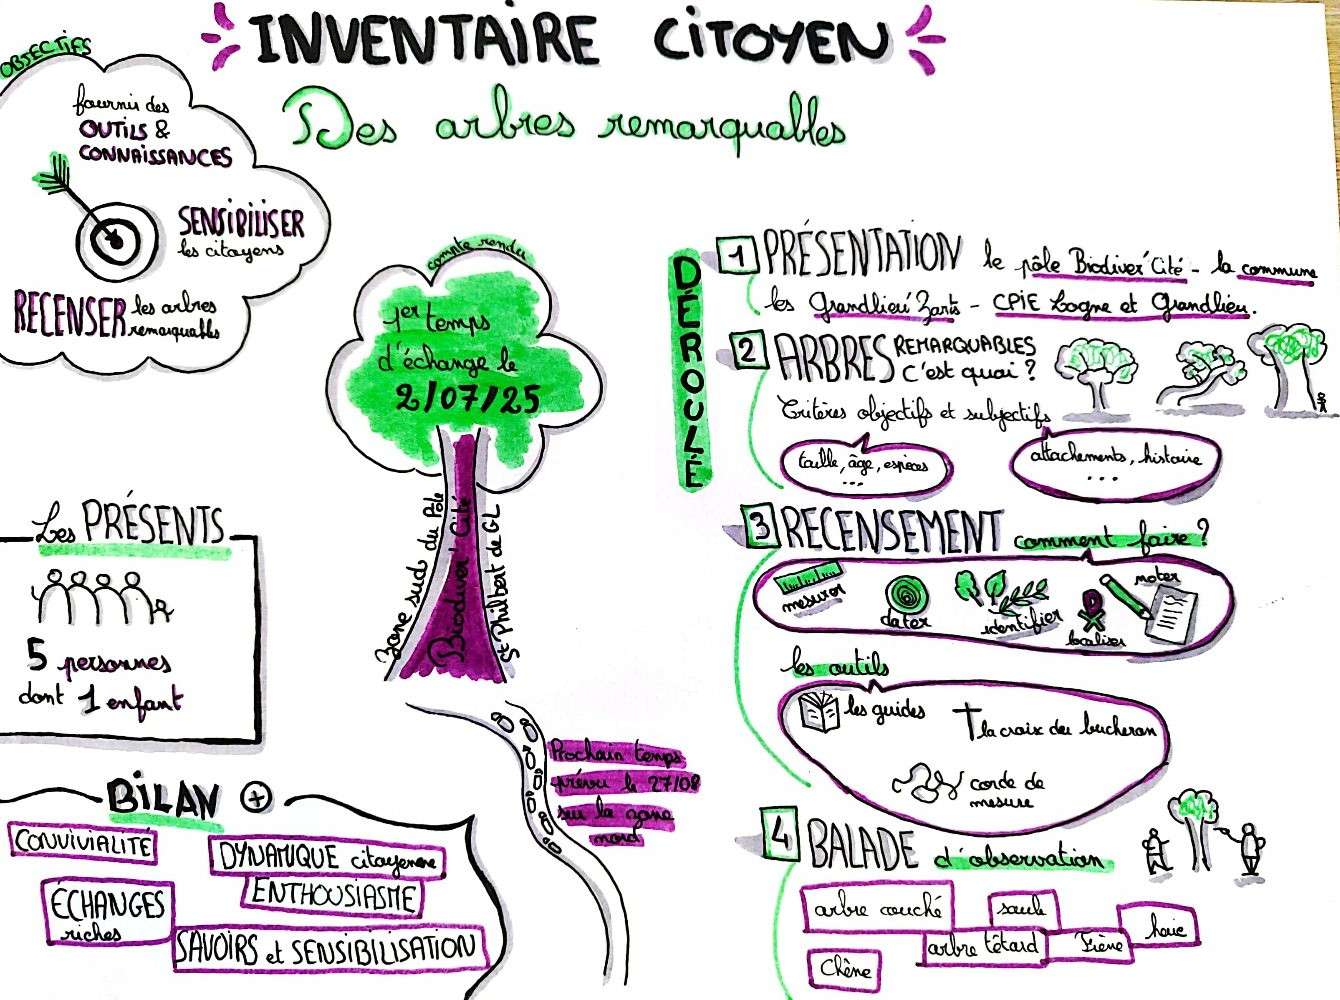 INVENTAIRE CITOYEN
Des arbres remarquables
OBJECTIFS
fournir des
OUTILS &
CONNAISSANCES
SENSIBILISER
les citoyens
RECENSER les arbres
remarquables
compte rendu
1er temps
d'échange le
2/07/25
Zone sud du Pôle
Biodiver'Cité
St Philbert de GL
Les PRÉSENTS
5 personnes
dont 1 enfant
BILAN +
CONVIVIALITÉ
DYNAMIQUE citoyenne
ENTHOUSIASME
ÉCHANGES
riches
SAVOIRS et SENSIBILISATION
Prochain temps
prévu le 27/08
sur la zone
nord
DÉROULÉ
1 PRÉSENTATION le pôle Biodiver'Cité - la commune
les Grandlieu'Zarts - CPIE Logne et Grandlieu.
2 ARBRES REMARQUABLES
c'est quoi ?
Critères objectifs et subjectifs
taille, âge, espèces
...
attachements, histoire
...
3 RECENSEMENT comment faire ?
mesurer
dater
identifier
localiser
noter
les outils
les guides
la croix du bucheron
corde de
mesure
4 BALADE d'observation
arbre couché
saule
haie
arbre têtard
Frêne
Chêne